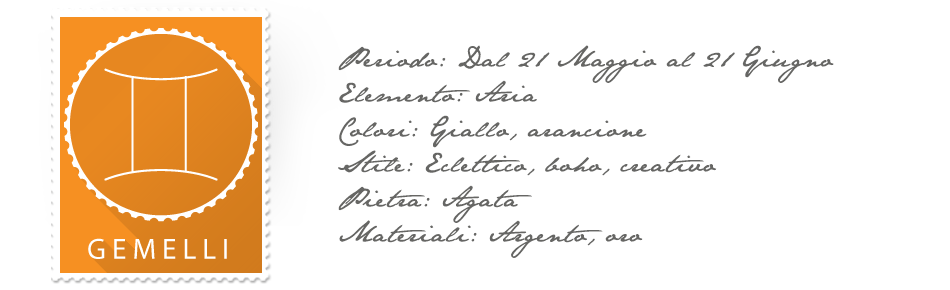 GEMELLI
Periodo: Dal 21 Maggio al 21 Giugno
Elemento: Aria
Colori: Giallo, arancione
Stile: Eclettico, boho, creativo
Pietra: Agata
Materiali: Argento, oro